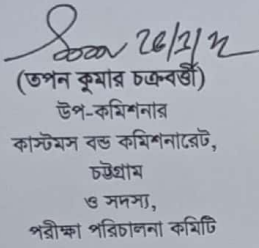 26/1/2
(তপন কুমার চক্রবর্তী)
উপ-কমিশনার
কাস্টমস বন্ড কমিশনারেট,
চট্টগ্রাম
ও সদস্য,
পরীক্ষা পরিচালনা কমিটি